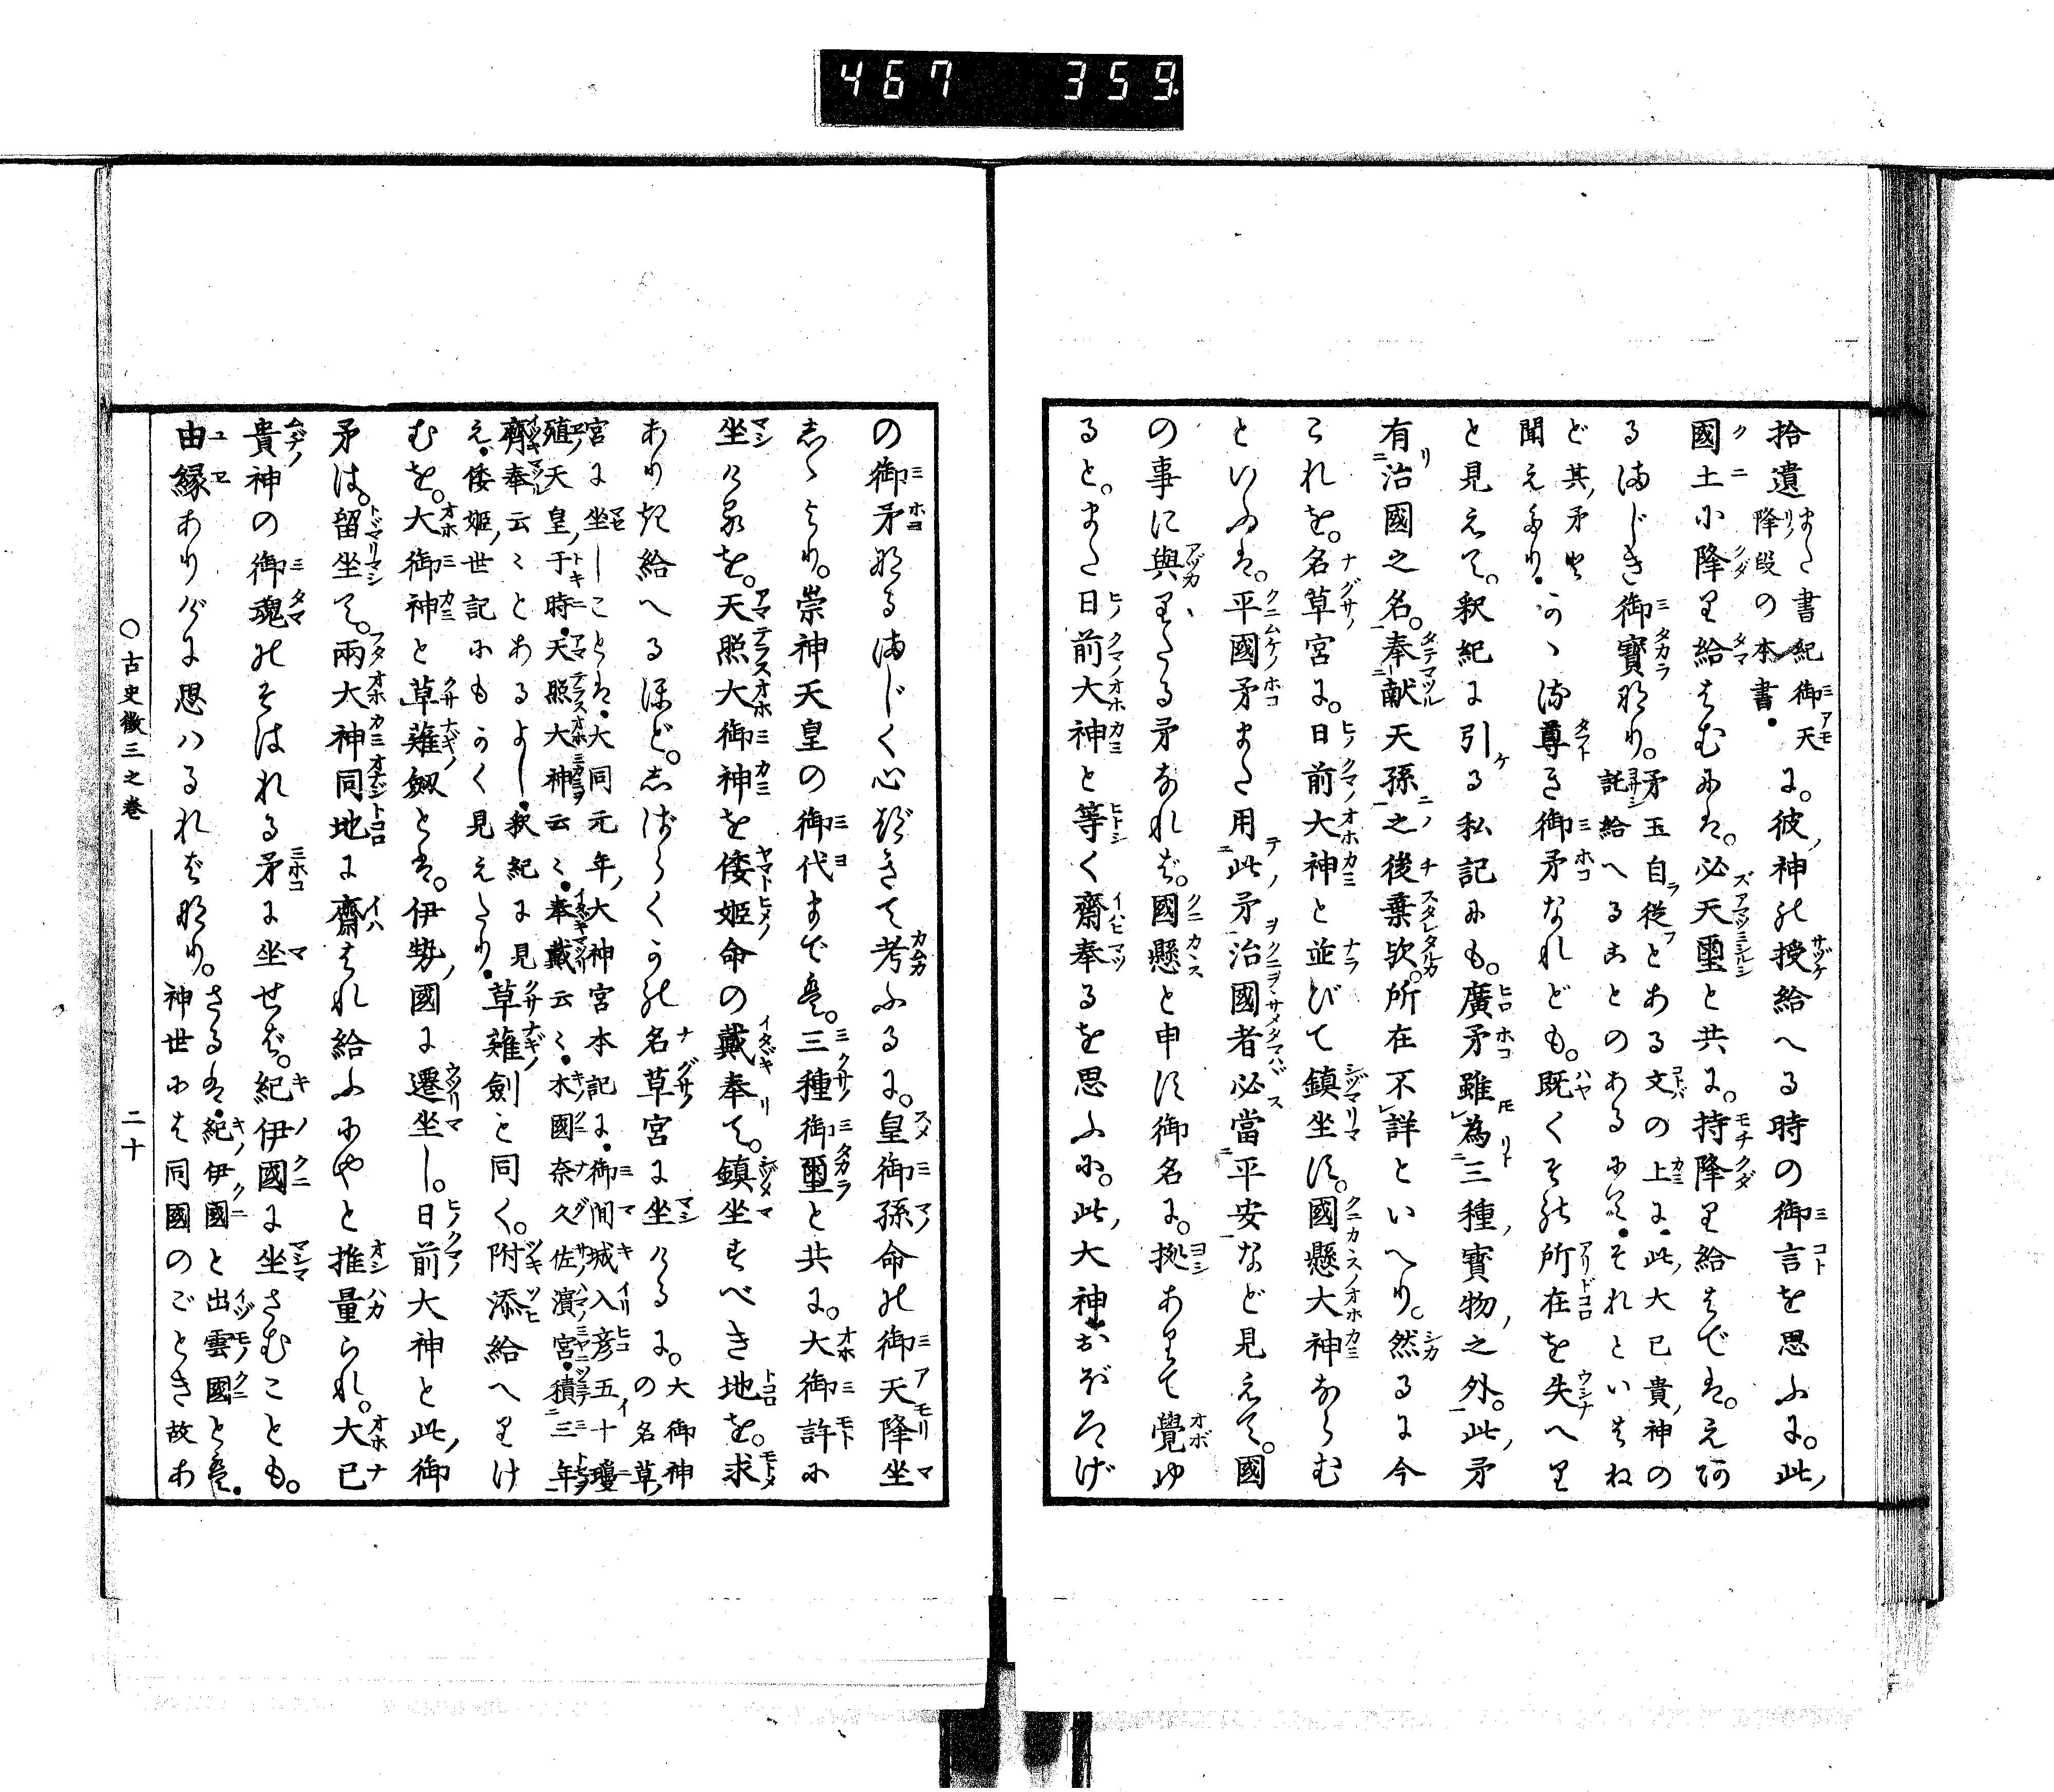 467 359
拾遺また書紀御天降段の本書に。彼神の授給へる時の御言を思ふに。此
國土に降り給はむには。必天璽と共に。持降り給はでは。え有
るまじき御寶なり。矛玉自從とある文の上に。此大已貴神の託給へることのあるに。それといはね
ど其矛と聞えたり。かゝる尊き御矛なれども。既くその所在を失へり
と見えて。釈紀に引る私記にも。廣矛雖為三種寶物之外。此矛
有治國之名。奉献天孫之後棄欤。所在不詳といへり。然るに今
これを。名草宮に。日前大神と並びて鎮坐す。國懸大神ならむ
といふは。平國矛また用此矛治國者必當平安など見えて。國
の事に與りたる矛なれば。國懸と申す御名に。拠ありて覺ゆ
ると。また日前大神と等く齋奉るを思ふに。此大神おぼろげ
の御矛なるまじく心づきて考ふるに。皇御孫命の御天降坐
しゝより。崇神天皇の御代までは。三種御璽と共に。大御許に
坐けるを。天照大御神を倭姫命の戴奉て。鎮坐すべき地を。求
ありき給へるほど。しばらくかの名草宮に坐けるに。大御神の名草
宮に坐しことは。大同元年大神宮本記に。御間城入彦五十瓊
殖天皇于時。天照大神云々。奉戴云々。木國奈久佐濱宮。積三年
齊奉云々とあるよし。釈紀に見え。倭姫世記にもかく見えたり。草薙劍と同く。附添給へりけ
むを。大御神と草薙劔とは。伊勢國に遷坐し。日前大神と此御
矛は。留坐て。兩大神同地に齋はれ給ふにやと推量られ。大已
貴神の御魂のそはれる矛に坐せば。紀伊國に坐さむことも。
由縁ありげに思はるればなり。さるは紀伊國と出雲國とは。神世には同國のごとき故あ
○古史徴三之巻 二十